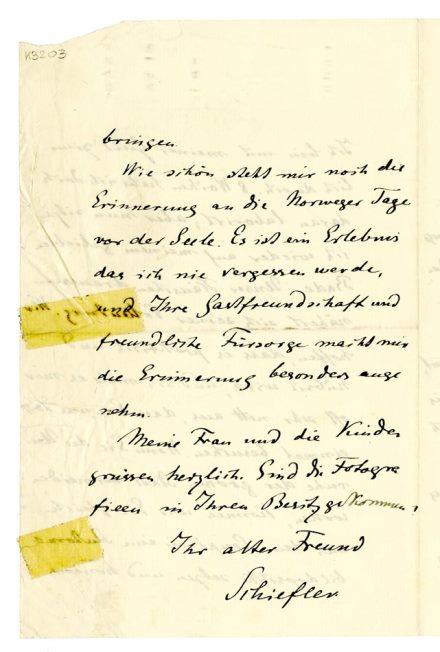 K3203
bringen.
Wie schön steht mir noch die
Erinnerung an die Norweger Tage
vor der Seele. Es ist ein Erlebnis
das ich nie vergessen werde,
und Ihre Gastfreundschaft und
freundliche Fürsorge macht mir
die Erinnerung besonders ange
nehm.
Meine Frau und die Kinder
grüssen herzlich. Sind die Fotogra
fieen in Ihren Besitz gekommen,
Ihr alter Freund
Schiefler